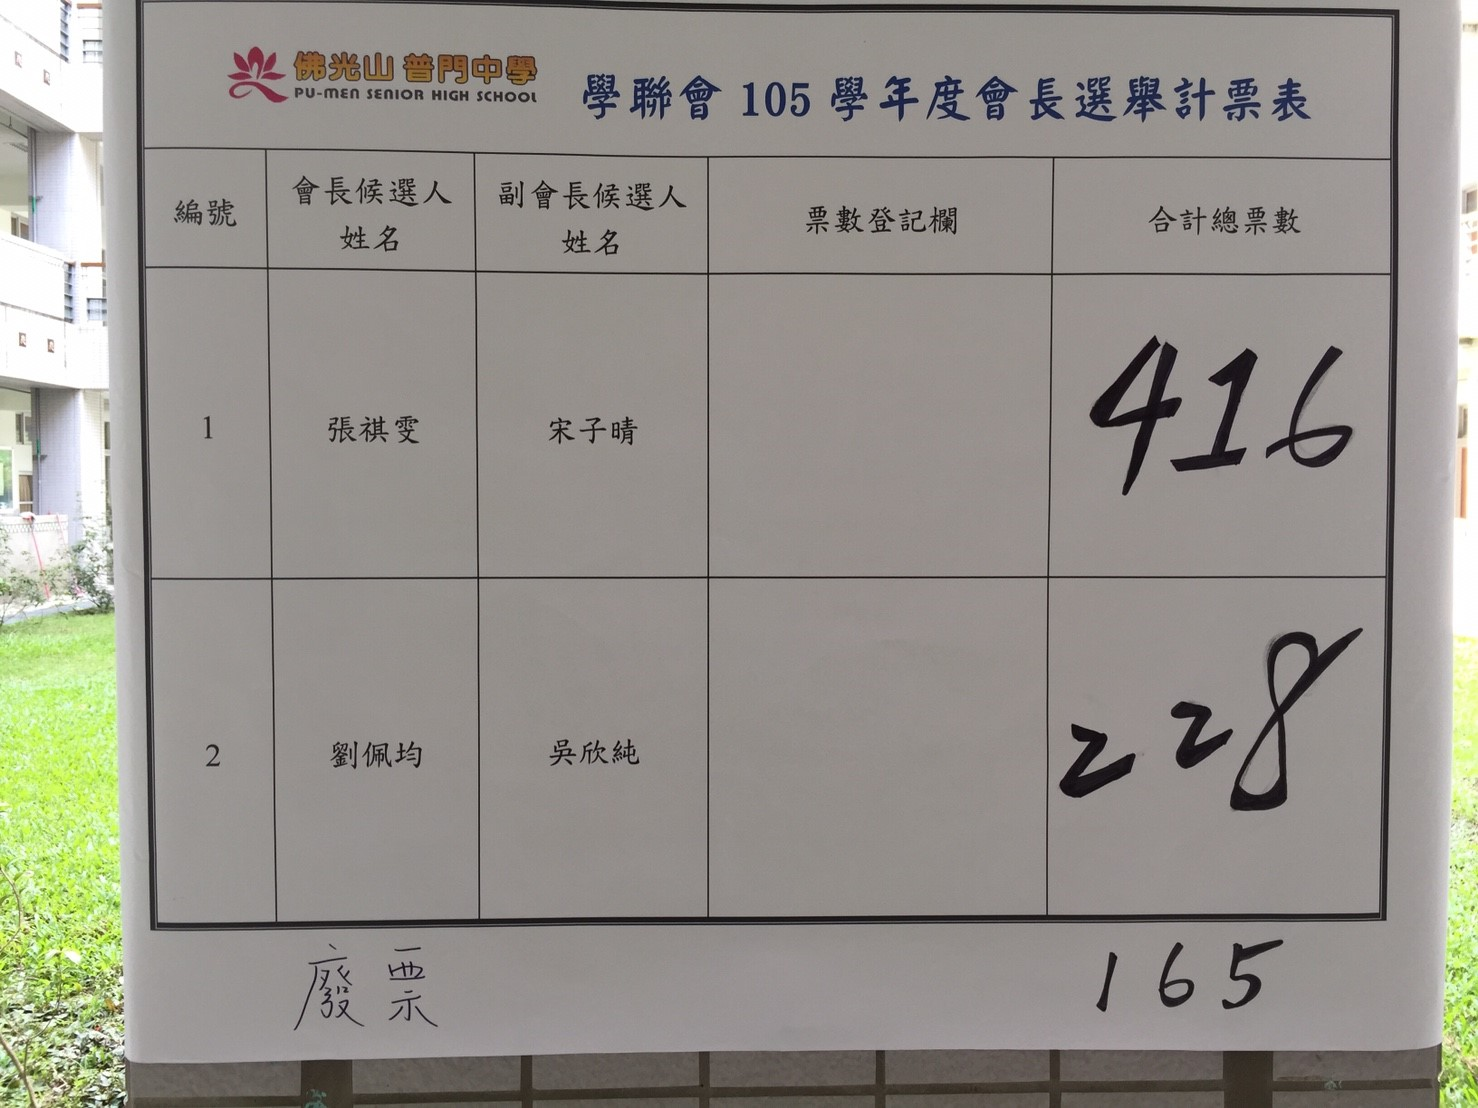 佛光山 普門中學
PU-MEN SENIOR HIGH SCHOOL
學聯會 105 學年度會長選舉計票表
編號
會長候選人
姓名
副會長候選人
姓名
票數登記欄
合計總票數
1
張祺雯
宋子晴
416
2
劉佩均
吳欣純
228
廢票
165